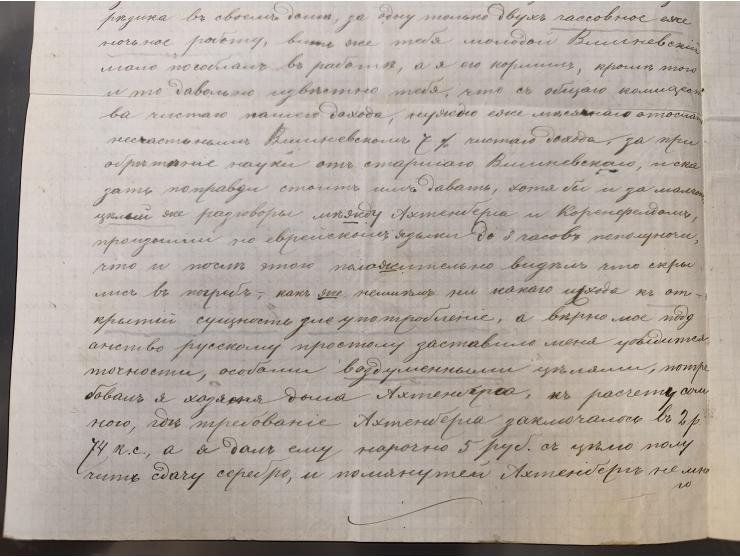 рядика въ своемъ домѣ, за одну только двухъ чассовное еже
ночьное работу, вишь же тебя молодой Вишневскій
мало пособлалъ въ работѣ, а я его кормилъ, кромѣ того
и то давольно извѣстно тебѣ, что съ общаго количест
ва чистаго нашего дохода, нужно еже мѣсячнаго отослать
несчастнымъ Вишневскомъ 7 % чистаго дохода, за при
обрѣтѣніе науки отъ старшаго Вишневскаго, и ска
зать поправди стоитъ имъ давать, хотя бы и за молчан
цѣлый же разговоры между Ахтенберга и Коренфелдомъ,
проидшіи по еврейскомъ языки до 3 часовъ пополуночи,
что и послѣ этого положительно видѣлъ что скры
лись въ погребъ, какъ же неимѣлъ ни какаго исхода къ от-
крытей сущность для употребленіе, а вѣрно мое подд
анство русскому простому заставило меня убѣдится
точности, особами воздуменными цѣлями, потре
бовалъ я хазяена дома Ахтенберга, къ расчету со м
ною, гдѣ требованіе Ахтенберга заключалось въ 2 р.
74 к. с., а я далъ ему нарочно 5 руб. съ цѣлю полу
чить сдачу серебро, и помянутей Ахтенбергъ не мно
го